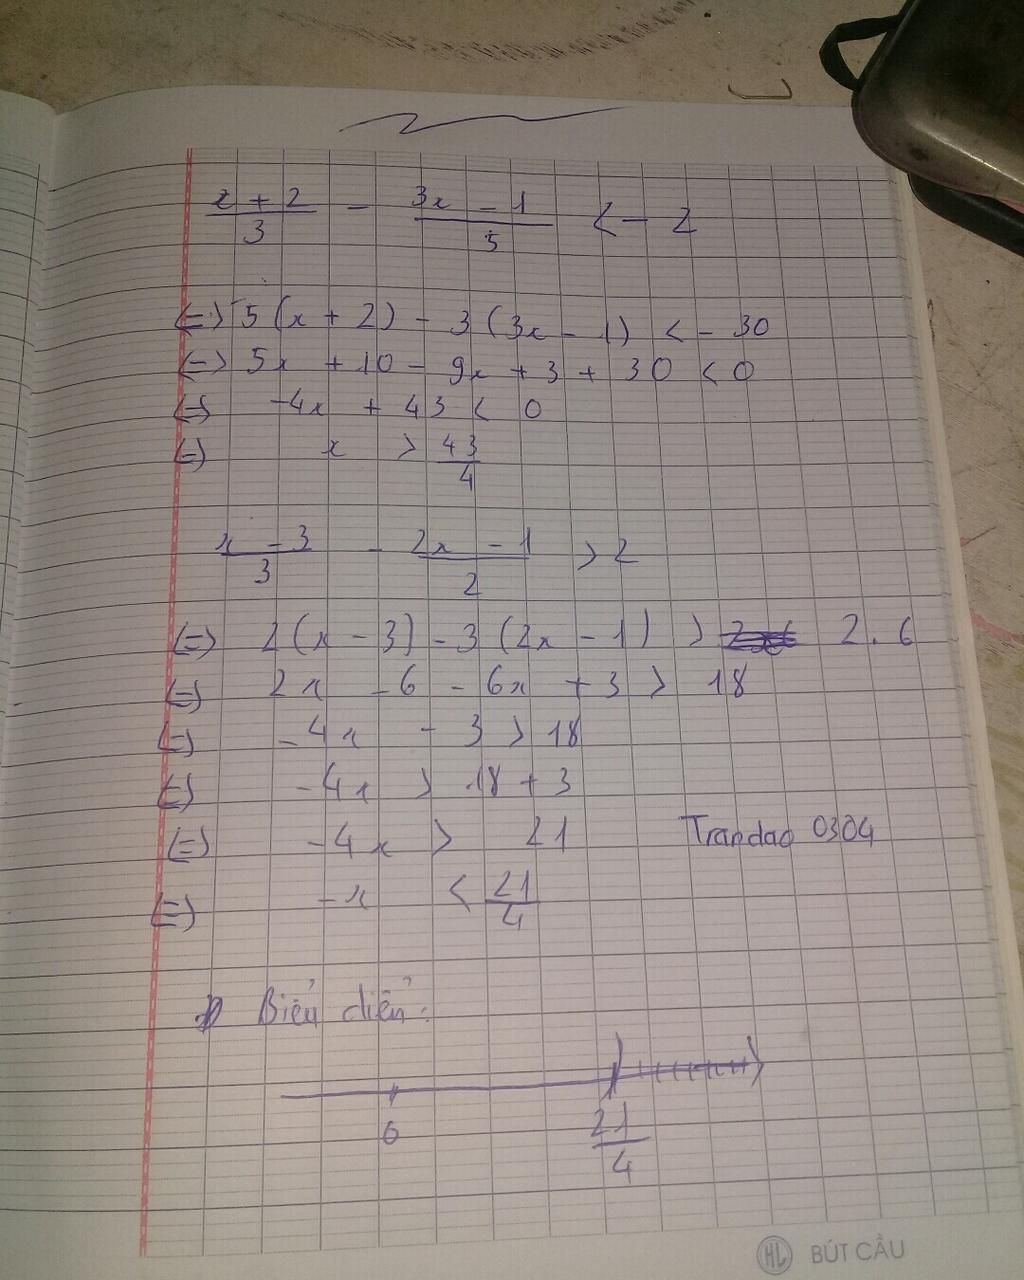 x + 2 / 3 - 3x - 1 / 5 < - 2
<=> 5(x + 2) - 3(3x - 1) < - 30
<=> 5x + 10 - 9x + 3 + 30 < 0
<=> -4x + 43 < 0
<=> x > 43 / 4
x - 3 / 3 - 2x - 1 / 2 > 2
<=> 2(x - 3) - 3(2x - 1) > 2.6
<=> 2x - 6 - 6x + 3 > 18
<=> -4x - 3 > 18
<=> -4x > 18 + 3
<=> -4x > 21
Trandao 0304
<=> -x < 21 / 4
Biểu diễn:
0
21 / 4
HL BÚT CẦU